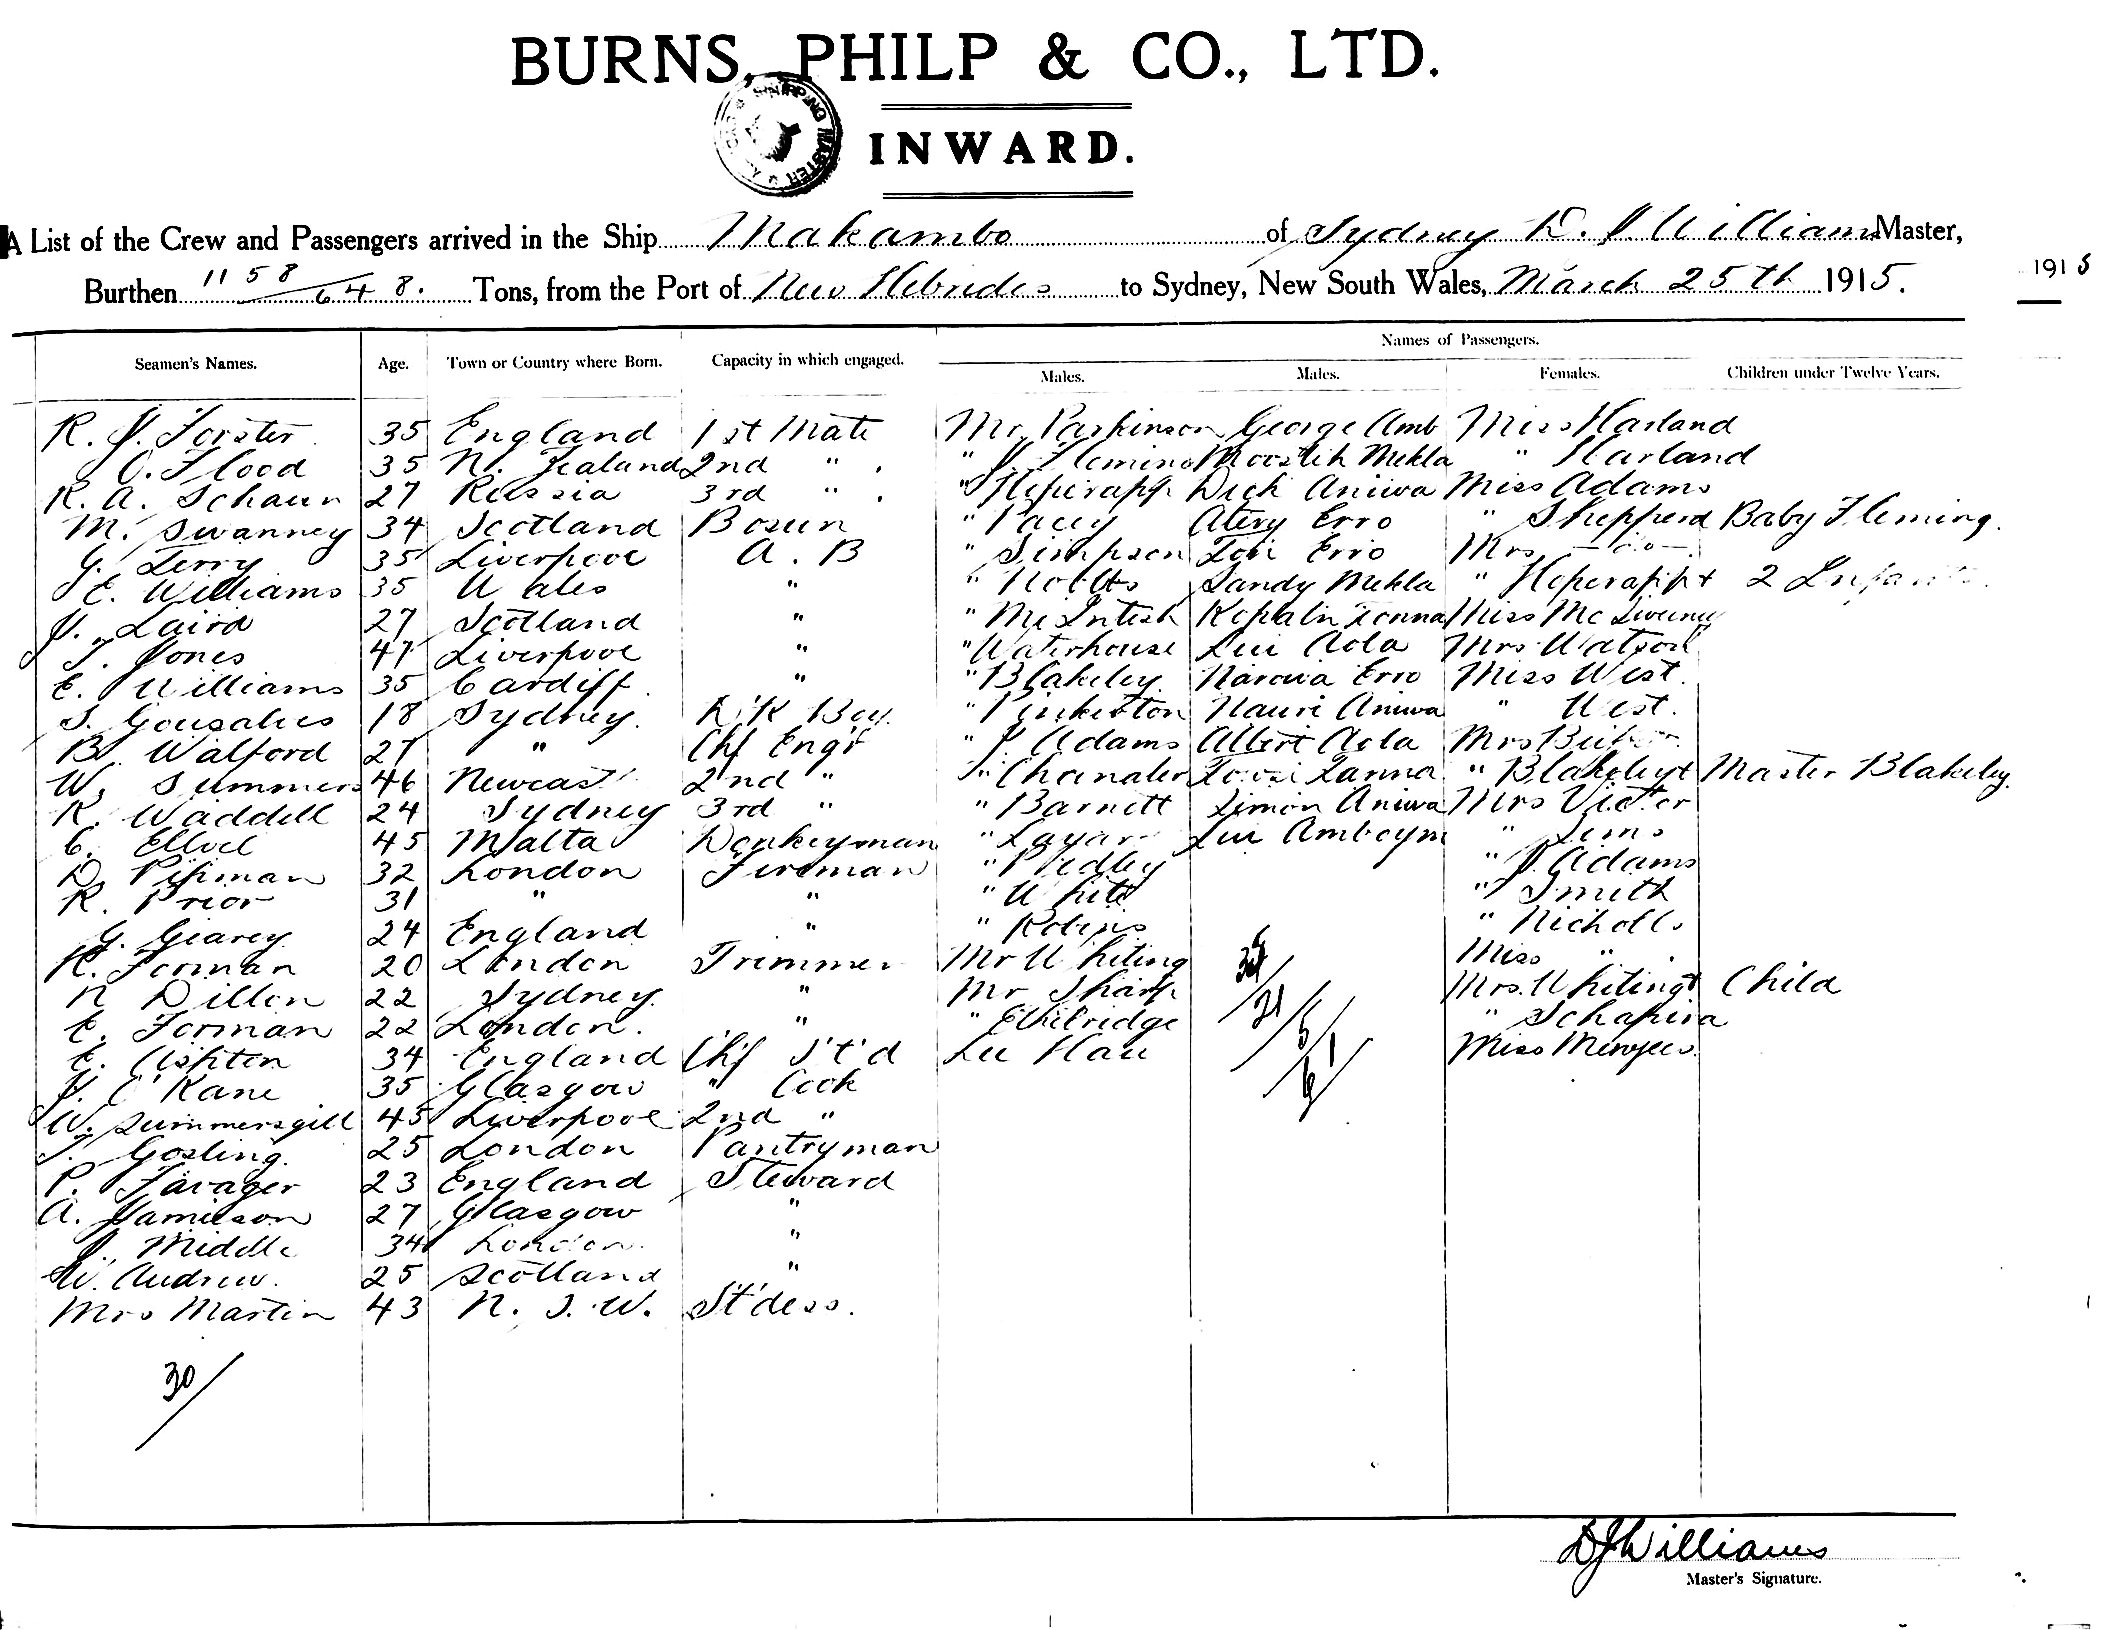 BURNS, PHILP & CO., LTD.
SHIPPING MASTER
INWARD.
A List of the Crew and Passengers arrived in the Ship Makambo of Sydney D. J. Williams Master,
Burthen 1158/648. Tons, from the Port of New Hebrides to Sydney, New South Wales, March 25th 1915.
1915
Names of Passengers.
Seamen's Names. Age. Town or Country where Born. Capacity in which engaged. Males. Males. Females. Children under Twelve Years.
R. J. Forster 35 England 1st Mate Mr. Parkinson George Amb Miss Harland
O. Flood 35 N. Zealand 2nd " . " J. Fleming Mekla " Harland
R. A. Schaun 27 Russia 3rd " . " Dick Aniwa Miss Adams
M. Swanney 34 Scotland Bosun " Pacey Atery Erro " Shepperd Baby Fleming.
G. Terry 35 Liverpool A. B " Simpson Erro Mrs -do-
E. Williams 35 Wales " " Sandy Mekla " 2 Infants
J. Laird 27 Scotland " " McIntosh Miss McSweeney
T. Jones 47 Liverpool " " Waterhouse Aola Mrs Watson
E. Williams 35 Cardiff " " Blakeley Erro Miss West.
S. Gonsalves 18 Sydney. Boy. " Pinkerton Nauri Aniwa " West.
B. Walford 27 " Chf Engr " J. Adams Albert Aola Mrs
W. Summers 46 Newcast 2nd " " Chandler Tanna " Blakeley + Master Blakeley.
R. Waddell 24 Sydney 3rd " " Barnett Simon Aniwa Mrs Victor
C. 45 Malta Donkeyman " " Sims
D. Pipman 32 London Fireman " Pidley " J. Adams
R. Prior 31 " " " White " Smith
G. Gearey 24 England " " Robins " Nicholls
H. Forman 20 London Trimmer Mr Whiting Miss " .
N Dillon 22 Sydney. " Mr Sharp Mrs. Whiting + Child
E. Forman 22 London. " " Ethelridge " Schapira
E. Ashton 34 England Chf St'd
J. O'Kane 35 Glasgow " Cook
W. Summersgill 45 Liverpool 2nd "
Gosling. 25 London Pantryman
P. Favager 23 England Steward
A. Jamieson 27 Glasgow "
J. Middle 34 London. "
W. Andrew. 25 Scotland "
Mrs Martin 43 N. S. W. St'dess.
30/
DJWilliams
Master's Signature.